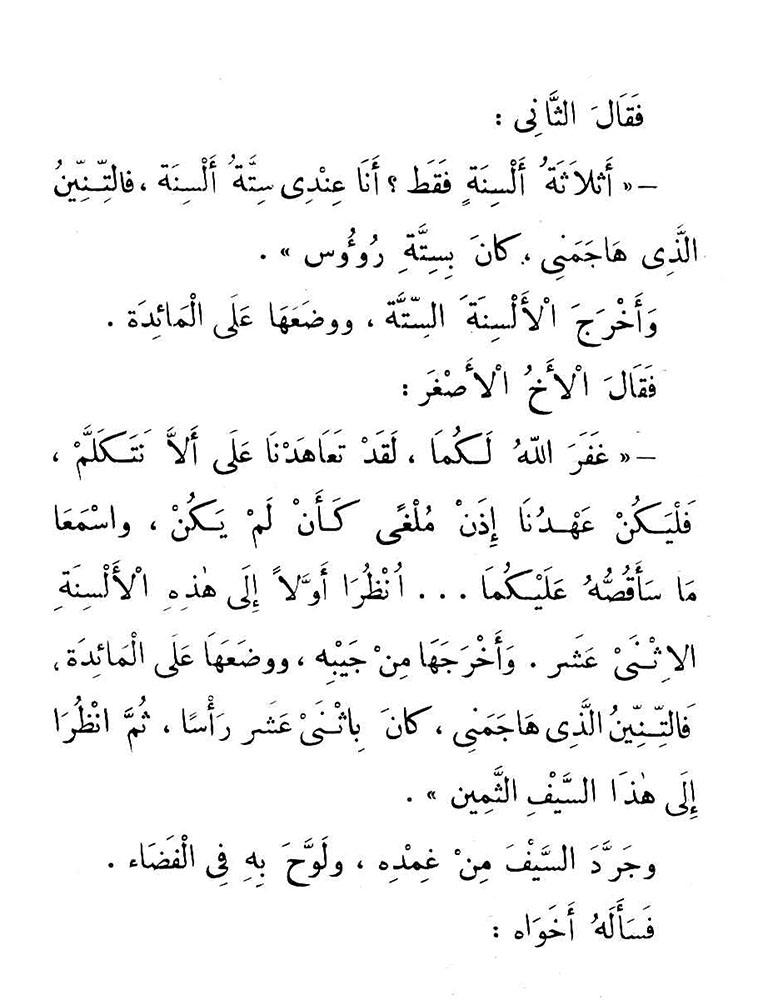 فَقَالَ الثَّانِى :
– « أَثلاَثَةُ أَلْسِنَةٍ فَقَط ؟ أَنَا عِنْدِى سِتَّةُ أَلْسِنَة ، فالتِّنِّينُ
الَّذِى هَاجَمَنِى ، كانَ بِسِتَّةِ رُوؤُوس » .
وَأَخْرَجَ الْأَلْسِنَةَ السِّتَّة ، ووضَعَهَا عَلَى الْمَائِدَة .
فَقَالَ الْأَخُ الْأَصْغَر :
– « غَفَرَ اللّٰهُ لَكُمَا ، لَقَدْ تَعَاهَدْنَا عَلَى أَلاَّ نَتَكَلَّمْ ،
فَلْيَكُنْ عَهْدُنَا إِذَنْ مُلْغًى كَأَنْ لَمْ يَكُنْ ، واسْمَعَا
مَا سَأَقُصُّهُ عَلَيْكُمَا ... اُنْظُرَا أَوَّلاً إِلَى هٰذِهِ الْأَلْسِنَةِ
الاِثْنَىْ عَشَر . وَأَخْرَجَهَا مِنْ جَيْبِه ، ووضَعَهَا عَلَى الْمَائِدَة ،
فَالتِّنِّينُ الَّذِى هَاجَمَنِى ، كانَ بِاثْنَىْ عَشَر رَأْسًا ، ثُمَّ انْظُرَا
إِلَى هٰذَا السَّيْفِ الثَّمِين » .
وجَرَّدَ السَّيْفَ مِنْ غِمْدِه ، ولَوَّحَ بِهِ فِى الْفَضَاء .
فَسَأَلَهُ أَخَوَاه :